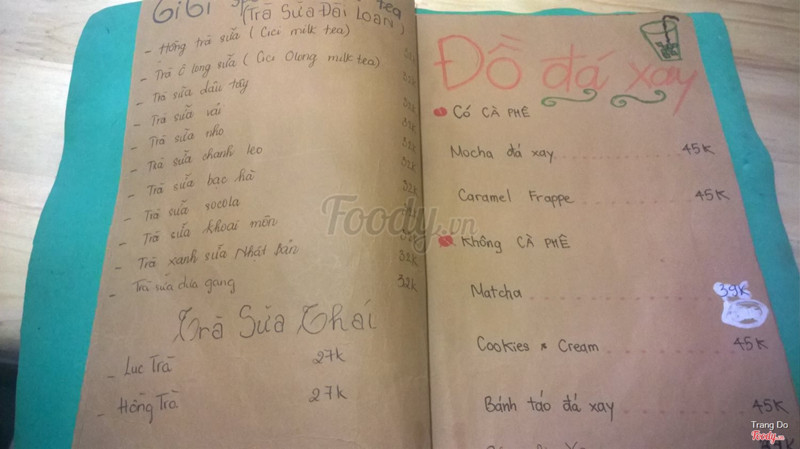 GiBi
tea
(Trà Sữa Đài Loan)
- Hồng trà sữa ( Cici milk tea)
- Trà Ô long sữa ( Cici Olong milk tea)
- Trà sữa dâu tây
- Trà sữa vải 32k
- Trà sữa nho 32k
- Trà sữa chanh leo 32k
- Trà sữa bạc hà 32k
- Trà sữa socola
- Trà sữa khoai môn
- Trà xanh sữa Nhật Bản 32k
- Trà sữa dưa gang 32k
Trà Sữa Thái
- Lục Trà 27k
- Hồng Trà 27k
Đồ đá xay
Có CÀ PHÊ
Mocha đá xay 45K
Caramel Frappe 45K
Không CÀ PHÊ
Matcha 39K
Cookies & Cream 45K
Bánh táo đá xay 45K
Foody.vn
Trang Do
Foody.vn